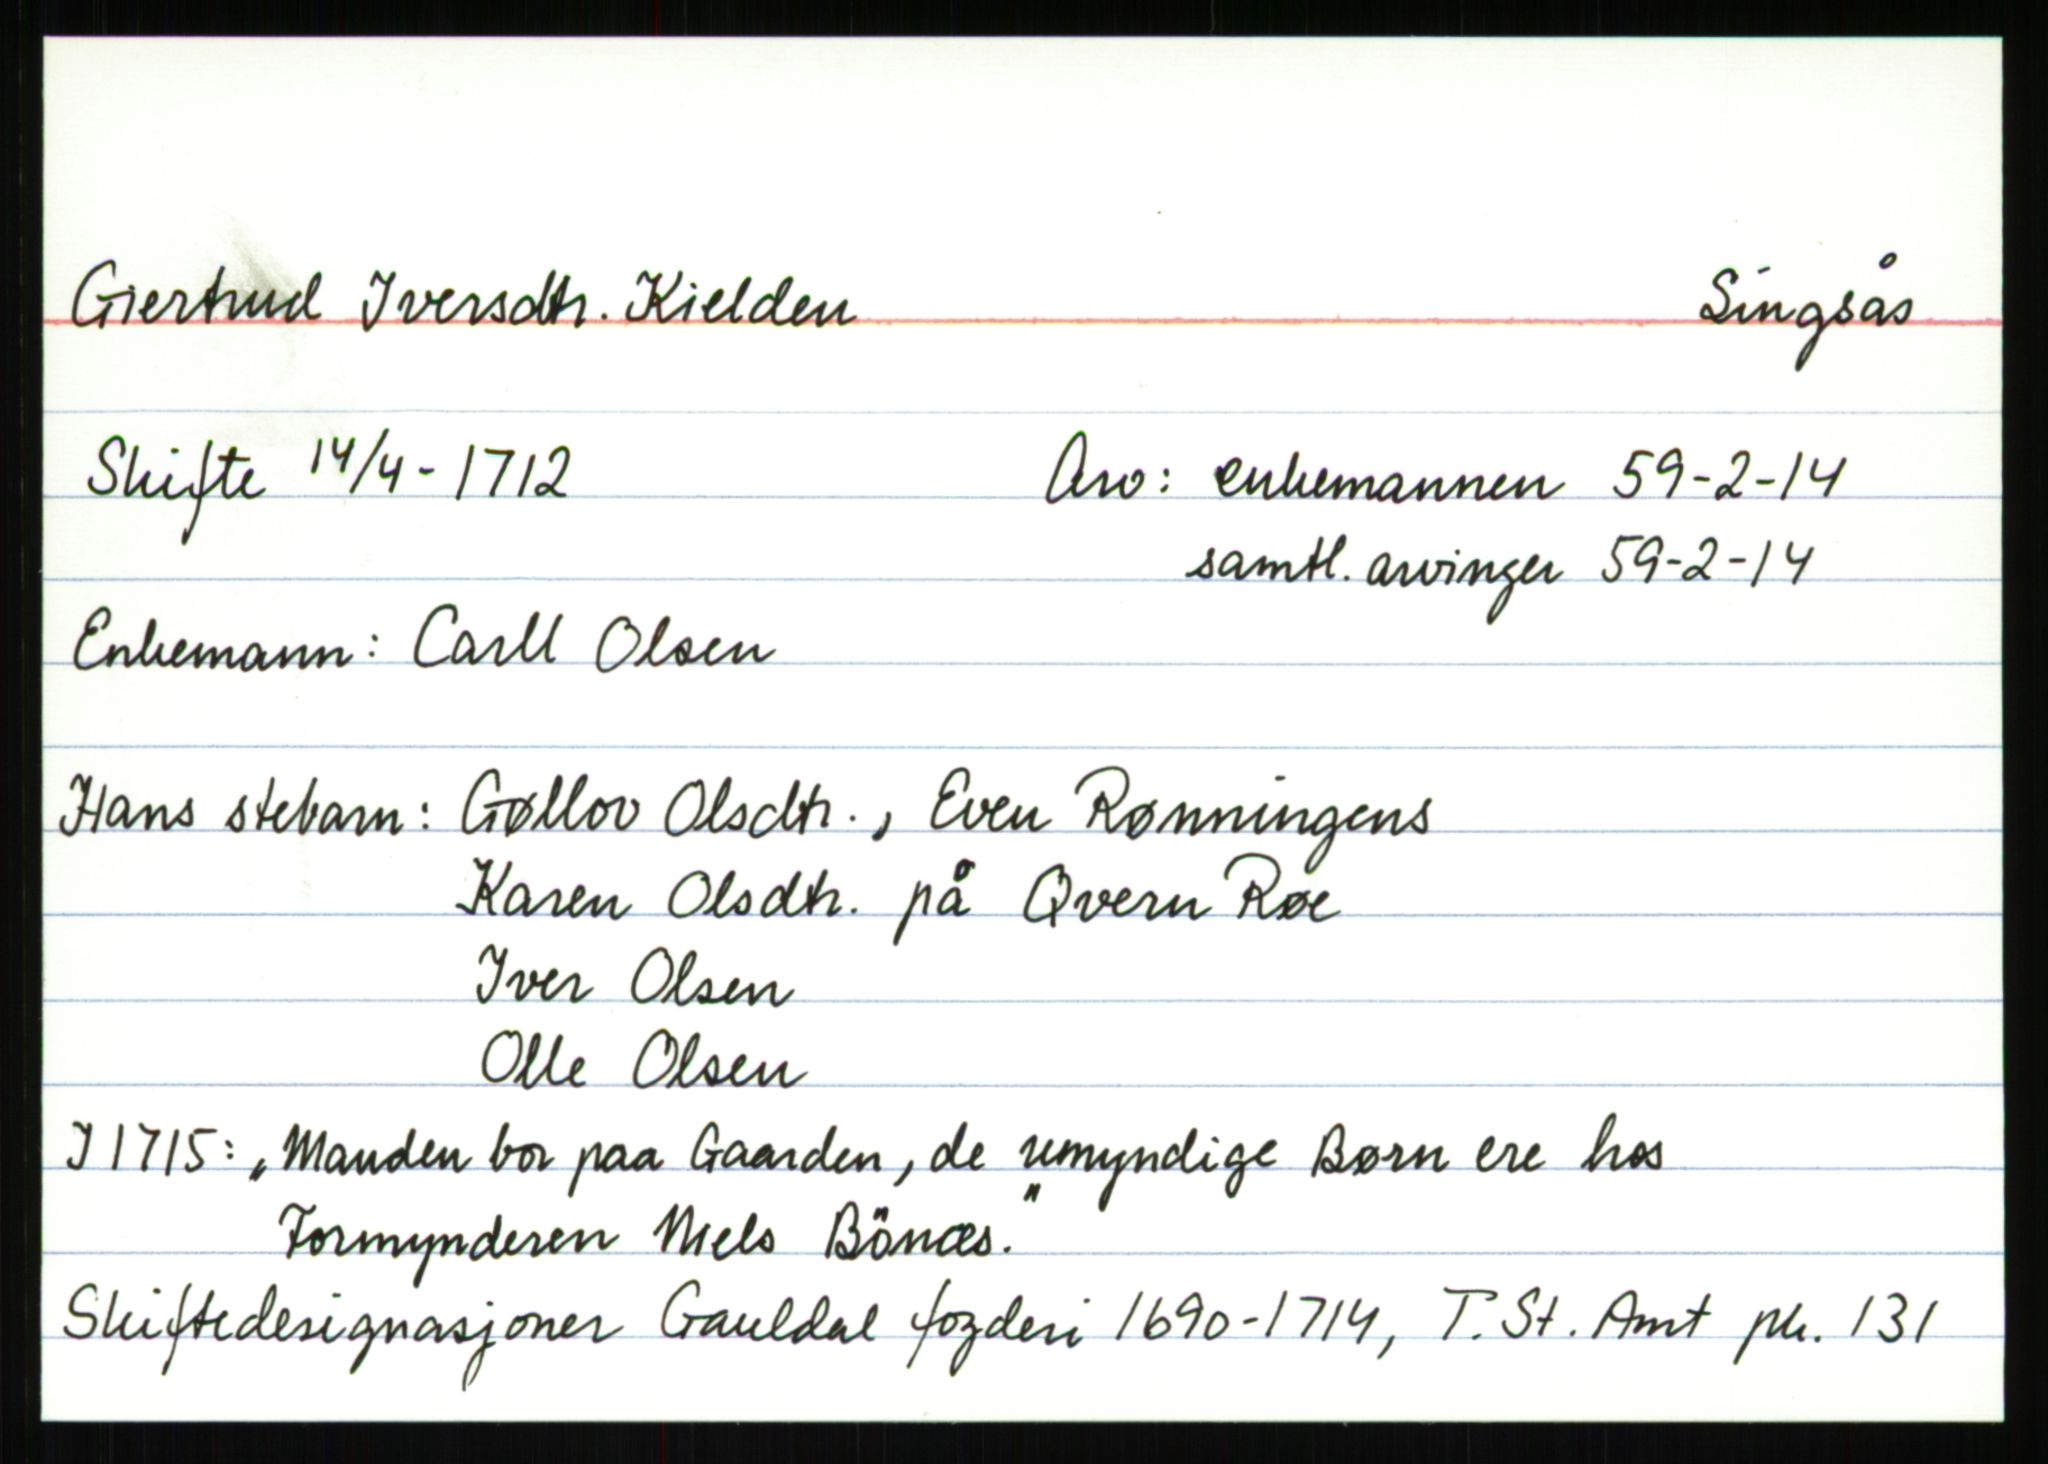 Giertrud Iversdtr. Kielden Singsås
Skifte 14/4-1712 Arv: enkemannen 59-2-14
samtl. arvinger 59-2-14
Enkemann: Carll Olsen
Hans stebarn: Gøllov Olsdtr., Even Rønningens
Karen Olsdtr. på Qvern Røe
Iver Olsen
Olle Olsen
I 1715: „Manden bor paa Gaarden, de umyndige Børn ere hos
Formynderen Niels Bönæs."
Skiftedesignasjoner Gauldal fogderi 1690-1714, T. St. Amt pk. 131